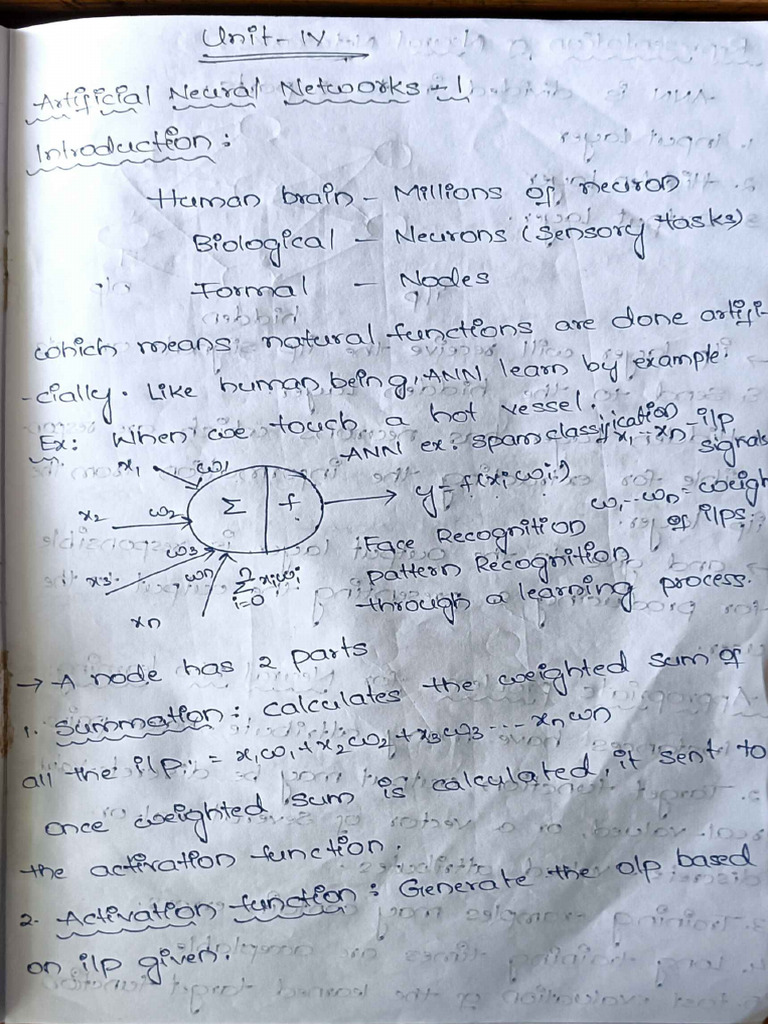 Unit - IV
Artificial Neural Networks - 1
Introduction :
Human brain - Millions of neuron
Biological - Neurons (sensory tasks)
Formal - Nodes
which means natural functions are done artifi-
-cially. Like human being, ANN learn by example.
Ex: When we touch a hot vessel.
ANN ex: spam classification
x1 ... xn - i/p
signals
x1 w1
Σ f
y = f(xi wi)
w1 ... wn = weigh
of i/ps
x2 w2
x3 w3
xn wn
n
Σ xiwi
i=0
Face Recognition
pattern Recognition
through a learning process.
→ A node has 2 parts
1. Summation : calculates the weighted sum of
all the i/p. = x1w1 + x2w2 + x3w3 ... xnwn
once weighted sum is calculated, it sent to
the activation function.
2. Activation function : Generate the o/p based
on i/p given.